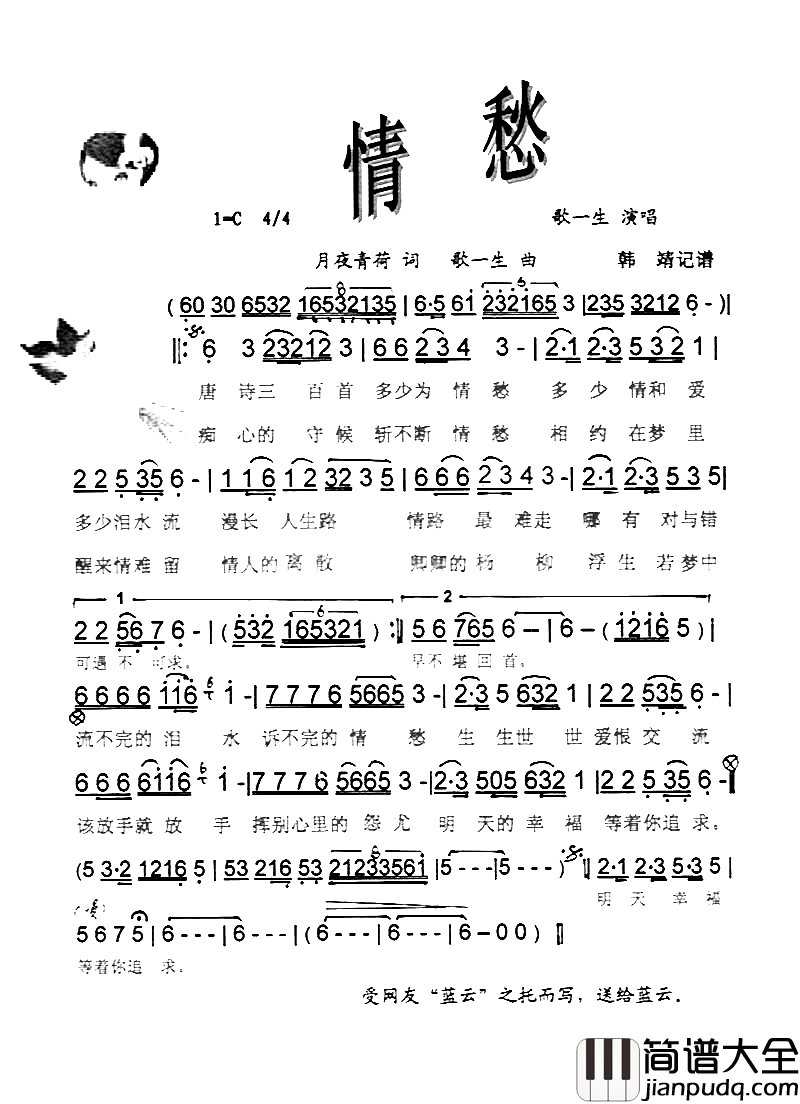 情愁
1=C 4/4 歌一生 演唱
月夜青荷 词 歌一生 曲 韩 靖记谱
6
(60 30 6532 16532135 | 6·5 61 232165 3 | 235 3212 6 -)|
‖: 6 3 23212 3 | 6 6 2 3 4 3 - | 2·1 2·3 5 3 2 1 |
唐 诗三 百首 多少为 情愁 多少 情和 爱
痴 心的 守候 斩不断 情愁 相约 在梦 里
2 2 5 35 6 - | 1 1 6 1 2 323 5 | 6 6 6 2 3 4 3 | 2·1 2·3 5 3 5 |
多少泪水 流 漫长 人生路 情路 最 难走 哪 有 对与错
醒来情难 留 情人的 离散 卿卿的 杨 柳 浮 生 若梦中
1 6 2
2 2 56 7 6 - | (532 165321) :‖ 5 6 765 6 - | 6 - (1216 5) |
可遇 不 可求。 早不 堪 回 首。
6 6 6 6 116 6 1 - | 7 7 7 6 5665 3 - | 2·3 5 632 1 | 2 2 535 6 - |
流不完的 泪 水 诉不完的 情 愁 生 生世 世 爱恨 交 流
666 6 6116 6 1 - | 777 6 5665 3 - | 2·3 505 632 1 | 2 2 535 6 - ‖
该放手就 放 手 挥别心里的 怨 尤 明 天的 幸 福 等着你追 求。
8
(5 3·2 1216 5 | 53 216 53 21233561 | 5 - - - | 5 - - ) ‖ 2·1 2·3 5 3 5 |
明 天 幸 福
5 6 7 5 | 6 - - - | 6 - - - | (6 - - - | 6 - - - | 6 - 0 0 ) ‖
等着你追 求。
受网友“蓝云”之托而写，送给蓝云.
简谱大全
jianpudq.com